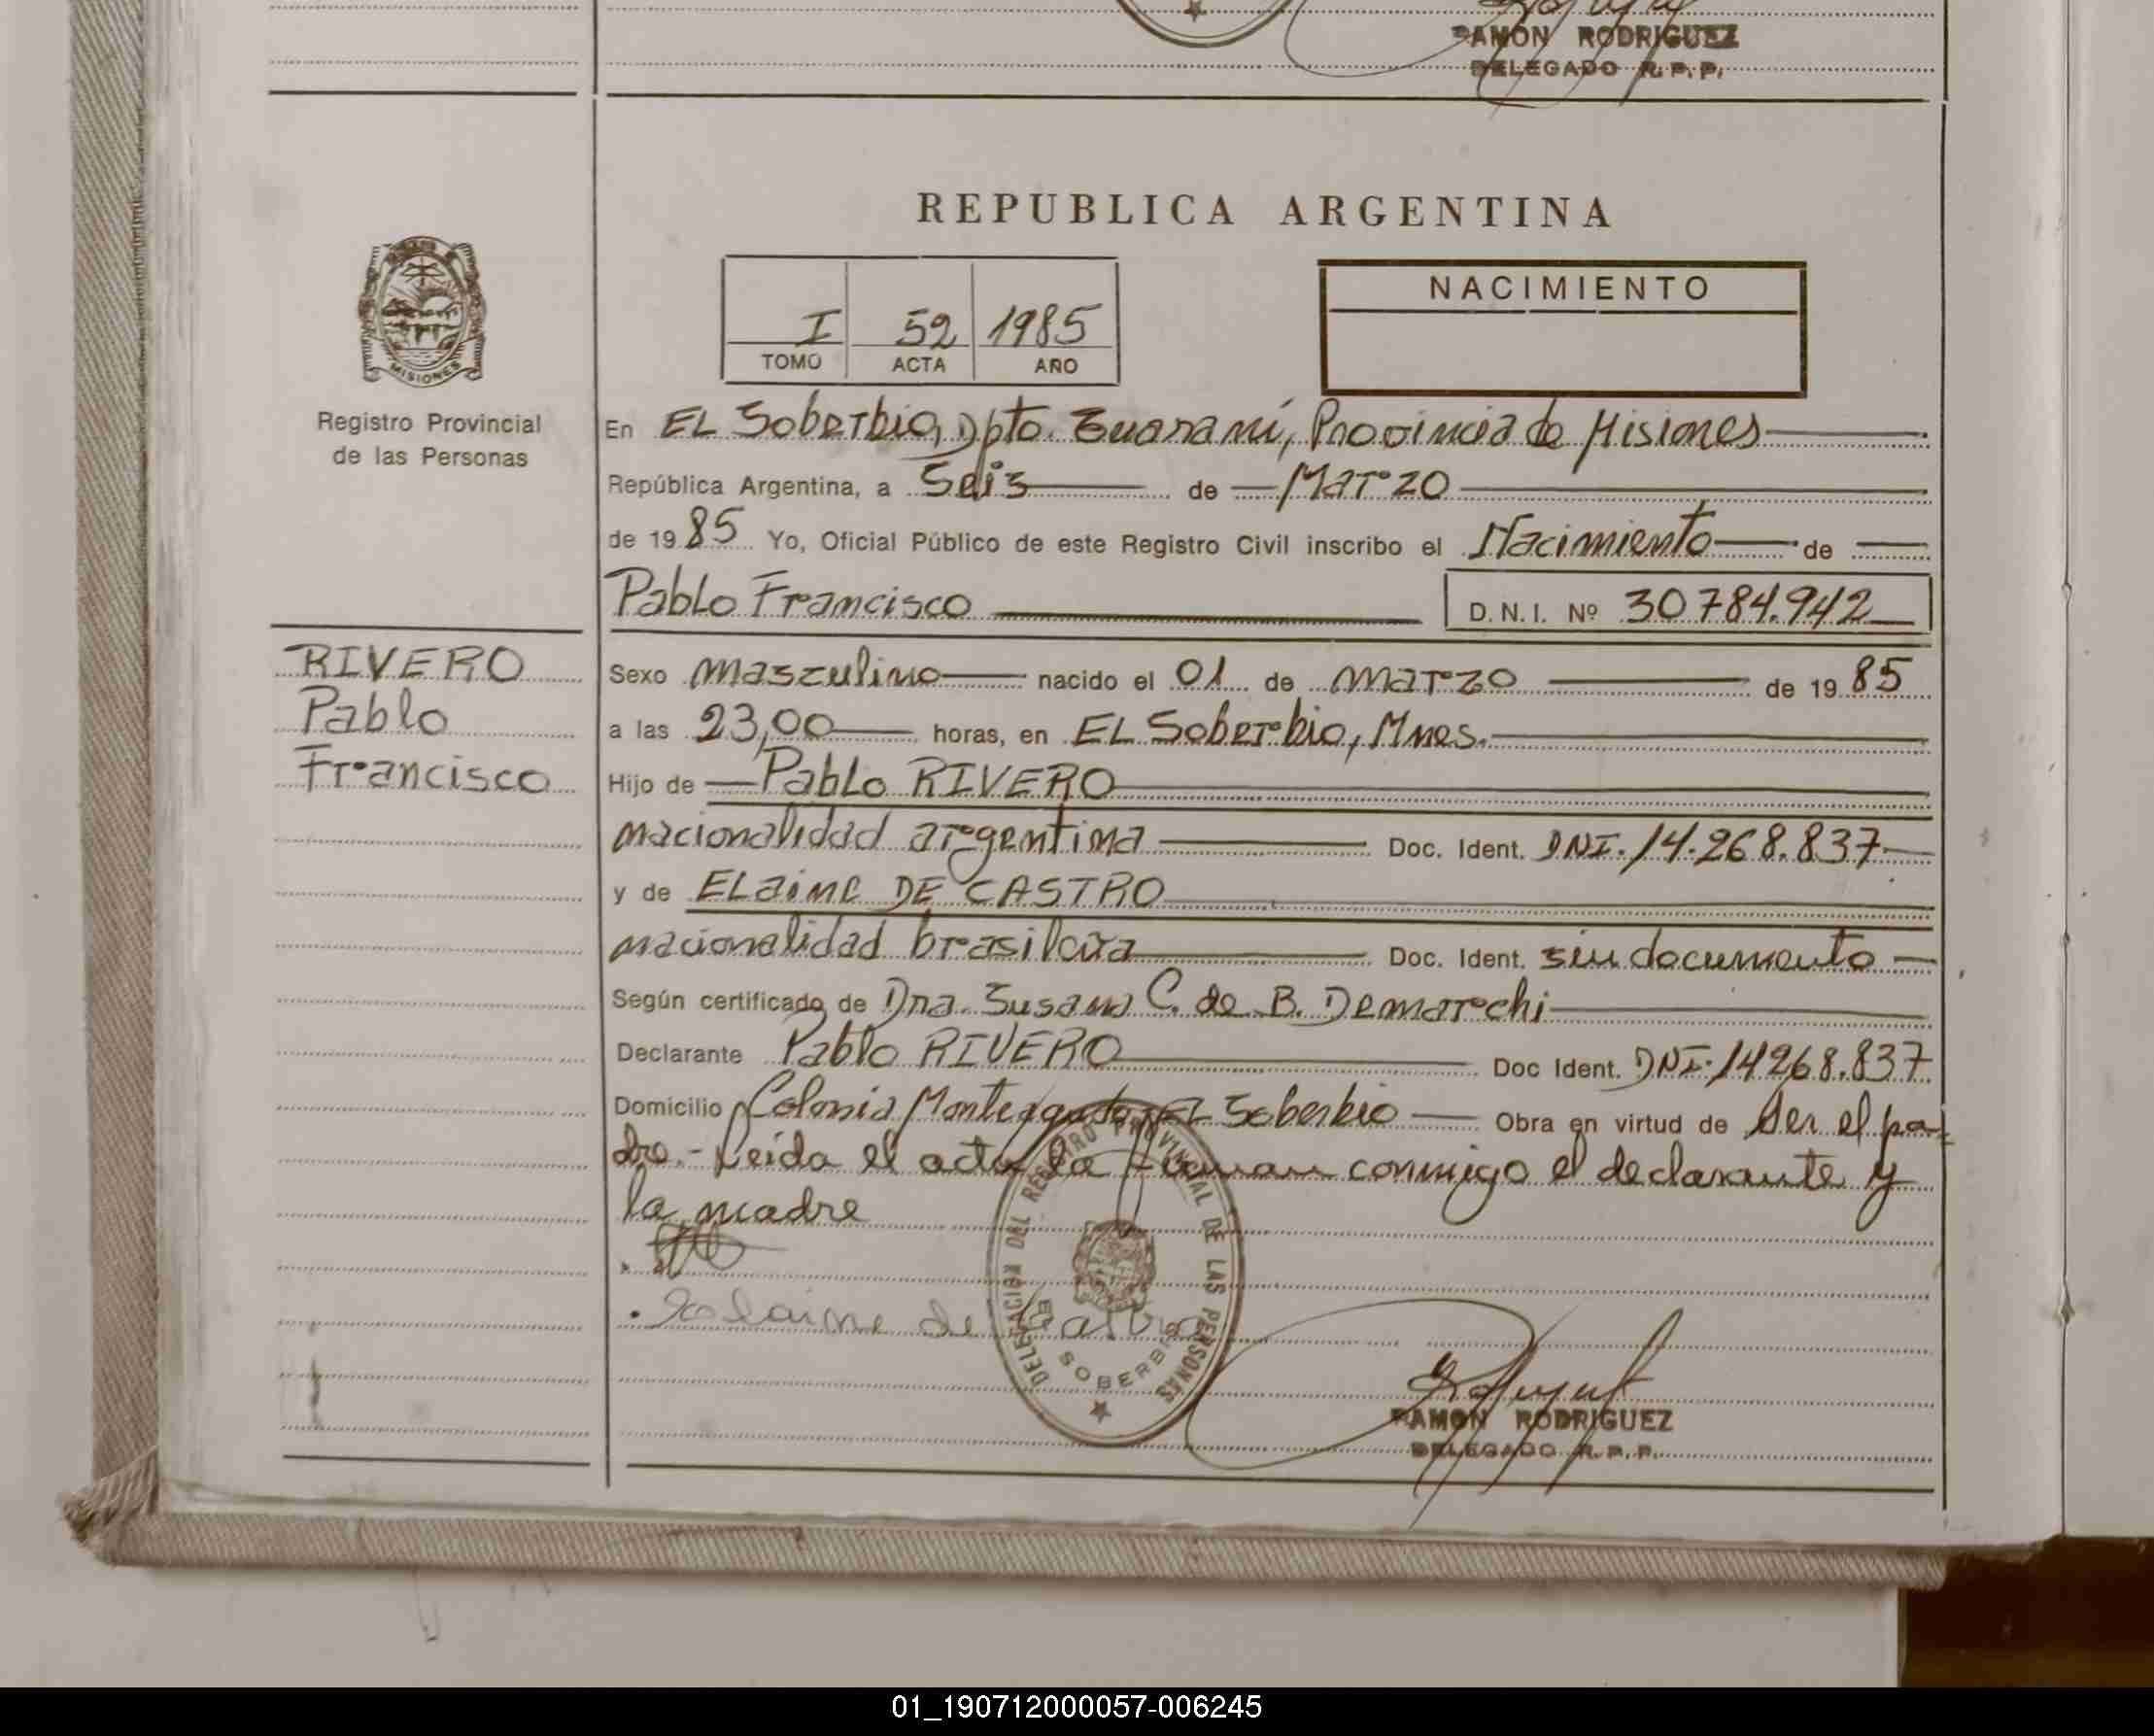 RAMON RODRIGUEZ
DELEGADO R.P.P.
REPUBLICA ARGENTINA
NACIMIENTO
I 52 1985
TOMO ACTA AÑO
MISIONES
Registro Provincial
de las Personas
En EL Soberbio, Dpto. Guaraní, Provincia de Misiones
República Argentina, a Seis de Marzo
de 1985 Yo, Oficial Público de este Registro Civil inscribo el Nacimiento de
Pablo Francisco D.N.I. Nº 30784.942
RIVERO
Pablo
Francisco
Sexo masculino nacido el 01 de marzo de 1985
a las 23,00 horas, en EL Soberbio, Mnes.
Hijo de Pablo RIVERO
nacionalidad argentina Doc. Ident. DNI. 14.268.837
y de ELaine DE CASTRO
nacionalidad brasilera Doc. Ident. sin documento
Según certificado de Dra. Susana C. de B. Demarchi
Declarante Pablo RIVERO Doc Ident. DNI. 14268.837
Domicilio Colonia Monteagudo, EL Soberbio Obra en virtud de ser el pa-
dre.- Leída el acta la firman conmigo el declarante y
la madre
Elaine de Castro
DELEGACION DEL REGISTRO PROVINCIAL DE LAS PERSONAS
EL SOBERBIO
RAMON RODRIGUEZ
DELEGADO R.P.P.
01_190712000057-006245